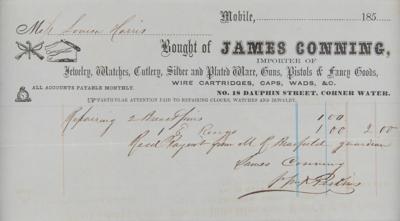 Mobile, 185
Louisa Harris
Bought of JAMES CONNING,
IMPORTER OF
Jewelry, Watches, Cutlery, Silver and Plated Ware, Guns, Pistols & Fancy Goods,
WIRE CARTRIDGES, CAPS, WADS, &C.
ALL ACCOUNTS PAYABLE MONTHLY.
NO. 18 DAUPHIN STREET, CORNER WATER.
PARTICULAR ATTENTION PAID TO REPAIRING CLOCKS, WATCHES AND JEWELRY.
Repairing 2 Breastpins 1 00
1 E Rings 1 00 2 00
Recd Payment from M guardian
James Conning